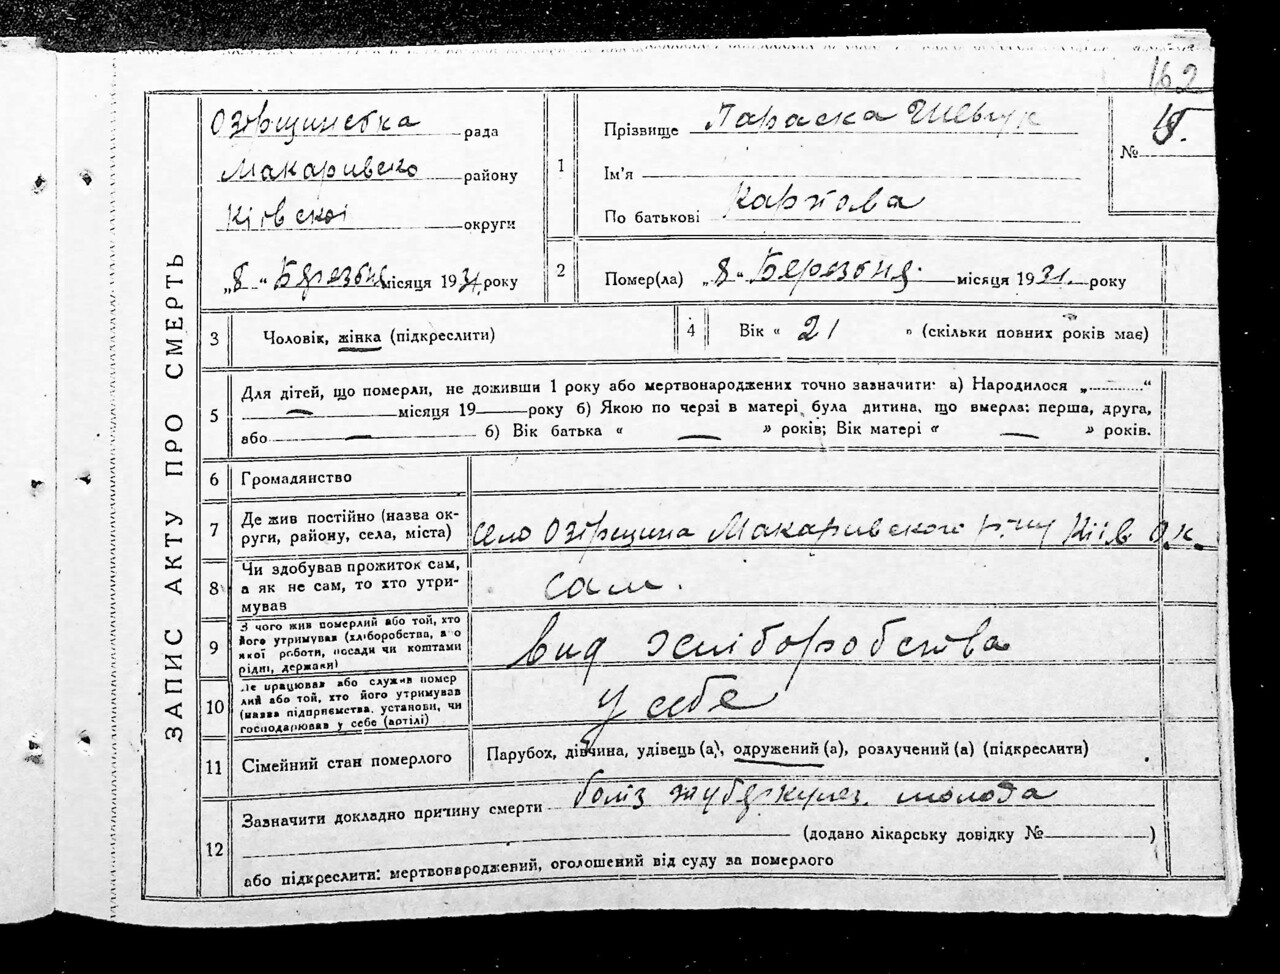 162
ЗАПИС АКТУ ПРО СМЕРТЬ
Озірщинська рада
Макаривско району
Кіівскоі округи
„8“ Березня місяця 1931 року
1 Прізвище Параска Шевчук
Ім'я
По батькові Карпова
№
2 Помер(ла) „8“ Березня місяця 1931 року
3 Чоловік, жінка (підкреслити)
4 Вік « 21 » (скільки повних років має)
5 Для дітей, що померли, не доживши 1 року або мертвонароджених точно зазначити: а) Народилося „..........“
— місяця 19 — року б) Якою по черзі в матері була дитина, що вмерла: перша, друга,
або — б) Вік батька « — » років; Вік матері « — » років.
6 Громадянство
7 Де жив постійно (назва ок-
руги, району, села, міста)
село Озірщина Макаривского р-ну Кіів ок.
8 Чи здобував прожиток сам,
а як не сам, то хто утри-
мував
сам.
9 З чого жив померлий або той, хто
його утримував (хліборобства, з
якої роботи, посади чи коштами
рідні, держави)
вид хліборобства
10 Де працював або служив помер
лий або той, хто його утримував
(назва підприємства, установи, чи
господарював у себе (артілі)
у себе
11 Сімейний стан померлого
Парубох, дівчина, удівець (а), одружений (а), розлучений (а) (підкреслити)
12 Зазначити докладно причину смерти туберкулез.
(додано лікарську довідку № )
або підкреслити: мертвонароджений, оголошений від суду за померлого